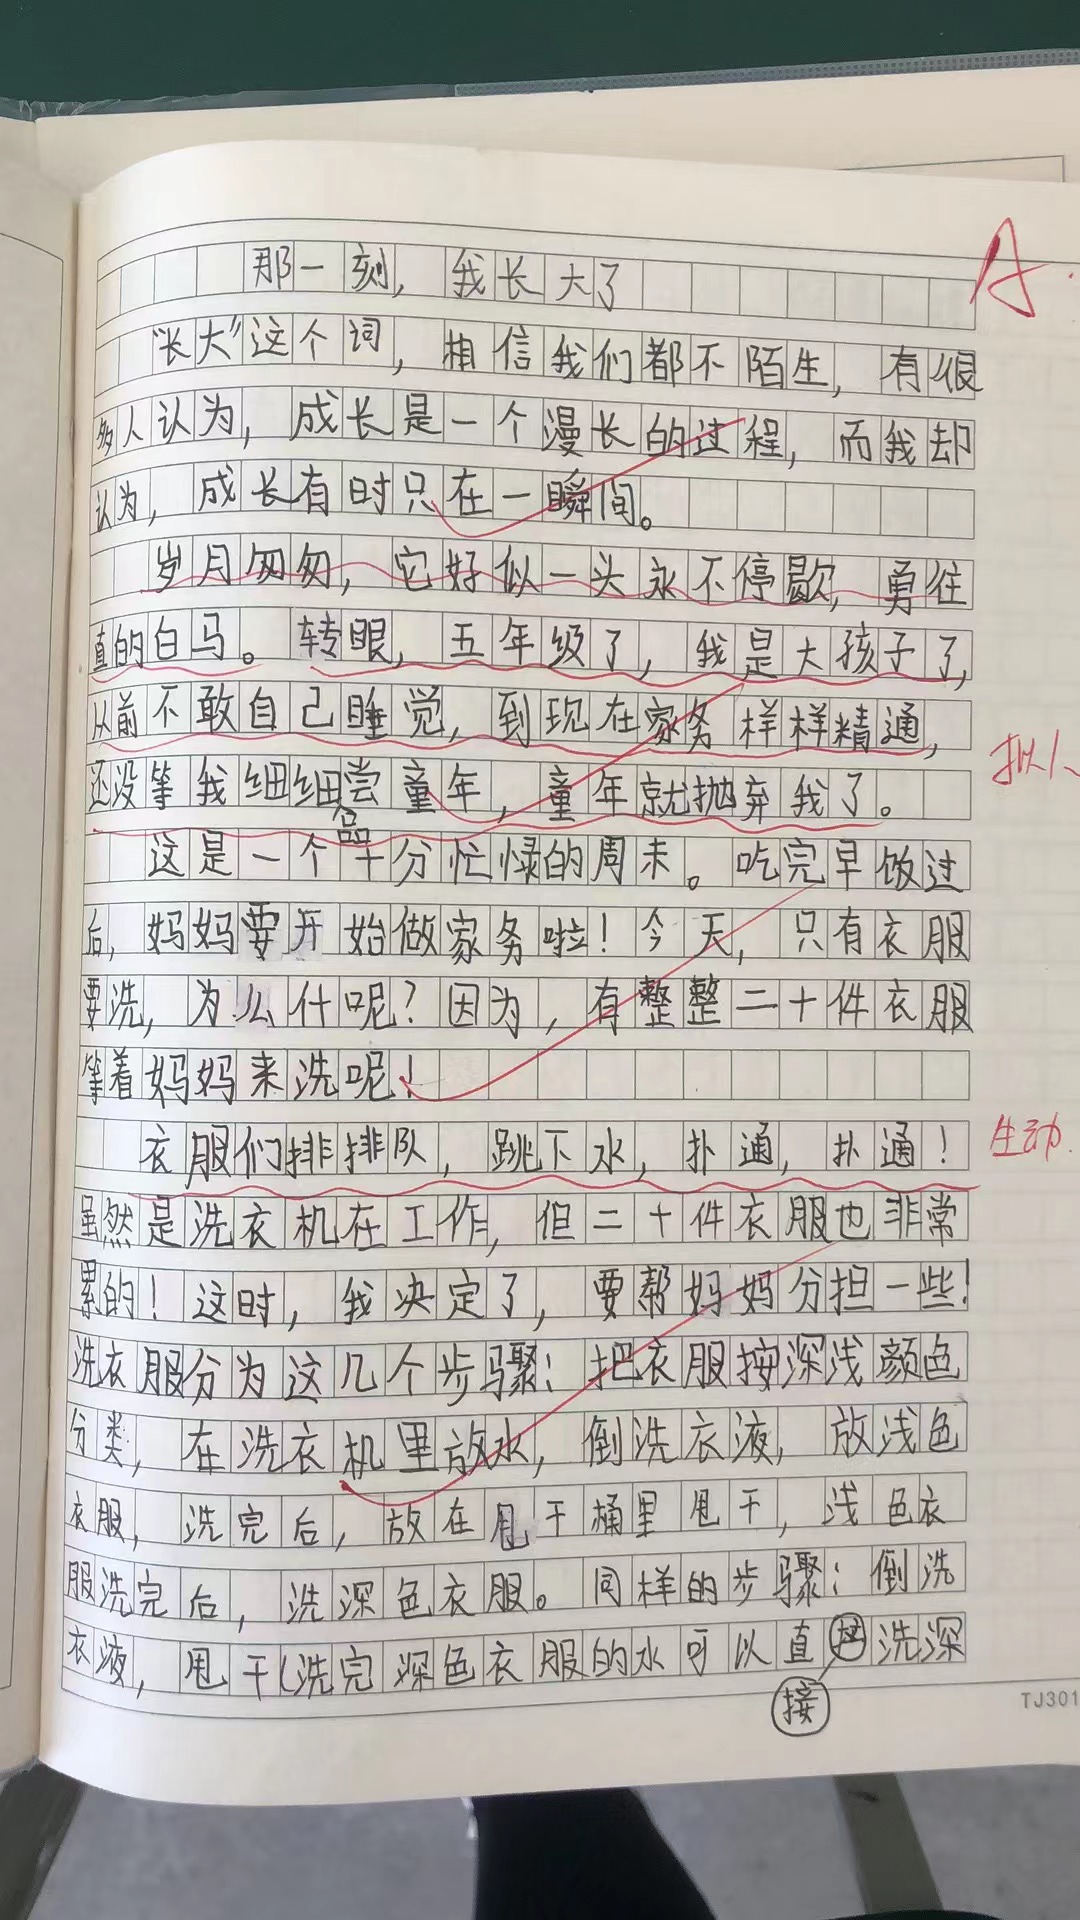 那一刻，我长大了
A
“长大”这个词，相信我们都不陌生，有很
多人认为，成长是一个漫长的过程，而我却
认为，成长有时只在一瞬间。
岁月匆匆，它好似一头永不停歇，勇往
直的白马。转眼，五年级了，我是大孩子了，
从前不敢自己睡觉，到现在家务样样精通，
拟人
还没等我细细尝童年，童年就抛弃我了。
品
这是一个十分忙碌的周末。吃完早饭过
后，妈妈要开始做家务啦！今天，只有衣服
要洗，为么什呢？因为，有整整二十件衣服
等着妈妈来洗呢！
衣服们排排队，跳下水，扑通，扑通！
生动
虽然是洗衣机在工作，但二十件衣服也非常
累的！这时，我决定了，要帮妈妈分担一些！
洗衣服分为这几个步骤：把衣服按深浅颜色
分类，在洗衣机里放水，倒洗衣液，放浅色
衣服，洗完后，放在甩干桶里甩干，浅色衣
服洗完后，洗深色衣服。同样的步骤：倒洗
衣液，甩干（洗完深色衣服的水可以直洗深
接
TJ301